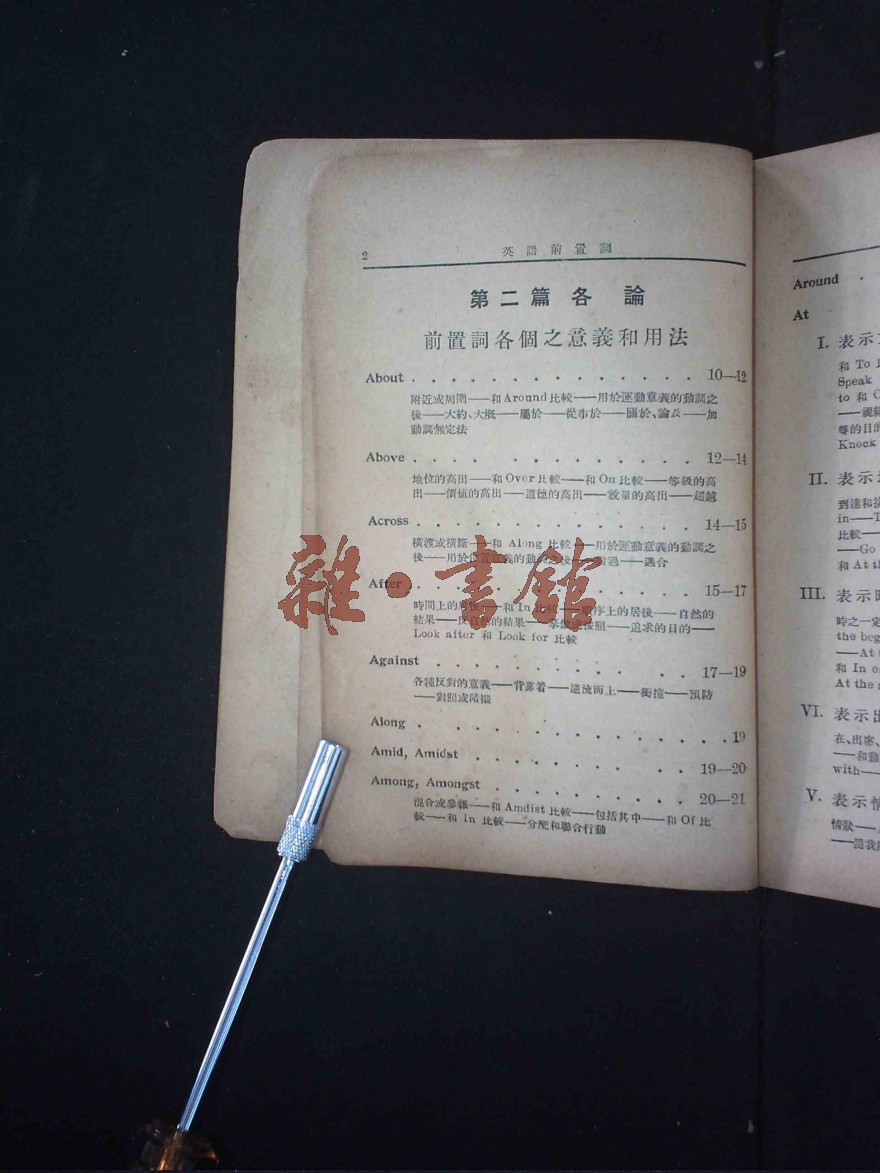 2
英語前置詞
第二篇 各論
前置詞各個之意義和用法
About . . . . . . . . . . . . . . 10—12
附近或周圍——和 Around 比較——用於運動意義的動詞之
後——大約、大概——屬於——從事於——關於、論及——加
動詞無定法
Above . . . . . . . . . . . . . . 12—14
地位的高出——和 Over 比較——和 On 比較——等級的高
出——價值的高出——道德的高出——數量的高出——超越
Across . . . . . . . . . . . . . . 14—15
橫渡或橫斷——和 Along 比較——用於運動意義的動詞之
後——用於位置意義的動詞之後——過——遇合
After . . . . . . . . . . . . . . 15—17
時間上的居後——和 In 比較——順序上的居後——自然的
結果——反自然的結果——按照——追求的目的——
Look after 和 Look for 比較
Against . . . . . . . . . . . . 17—19
各種反對的意義——背靠着——逆流而上——衝撞——預防
——對照或陪襯
Along . . . . . . . . . . . . . 19
Amid, Amidst . . . . . . . . . . 19—20
Among, Amongst . . . . . . . . . 20—21
混合或參雜——和 Amdist 比較——包括其中——和 Of 比
較——和 in 比較——分配和聯合行動
雜·書館
Around
At
I. 表示
和 To
Speak
to 和
——視
等的目的
Knock
II. 表示
到達和
in——
比較——
——Go
和 At th
III. 表示時
時之一定
the beg
——At
和 In o
At the
VI. 表示出
在、出席、
——和動
with——
V. 表示情
情狀——